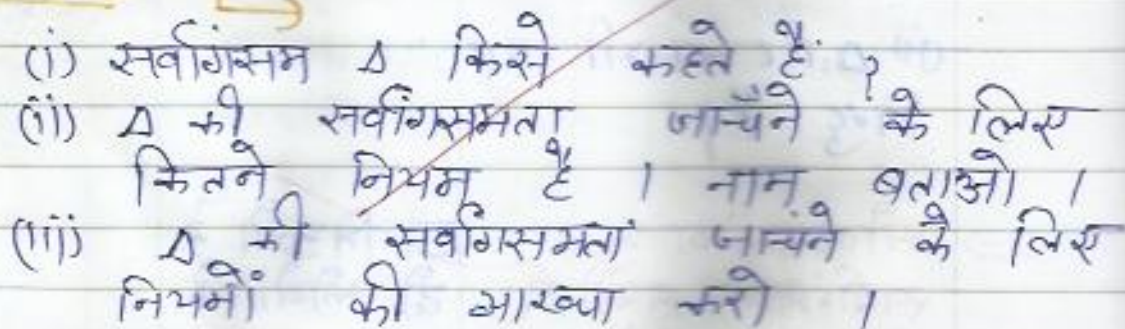 (i) सर्वागंसम Δ किसे कहते हैं ?
(ii) Δ की सर्वांगसमता जाचँने के लिए
कितने नियम है । नाम बताओ ।
(iii) Δ की सर्वागसमतां जाचंने के लिए
नियमों की व्याख्या करो ।